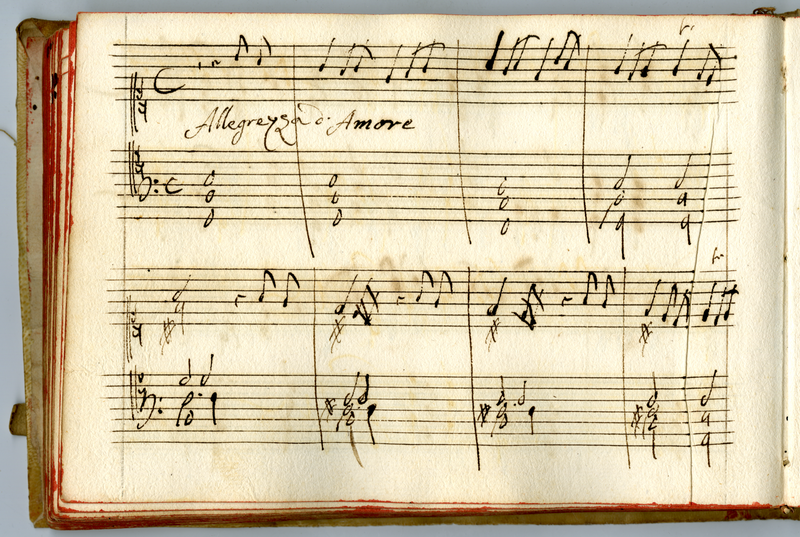 Allegrezza d'Amore